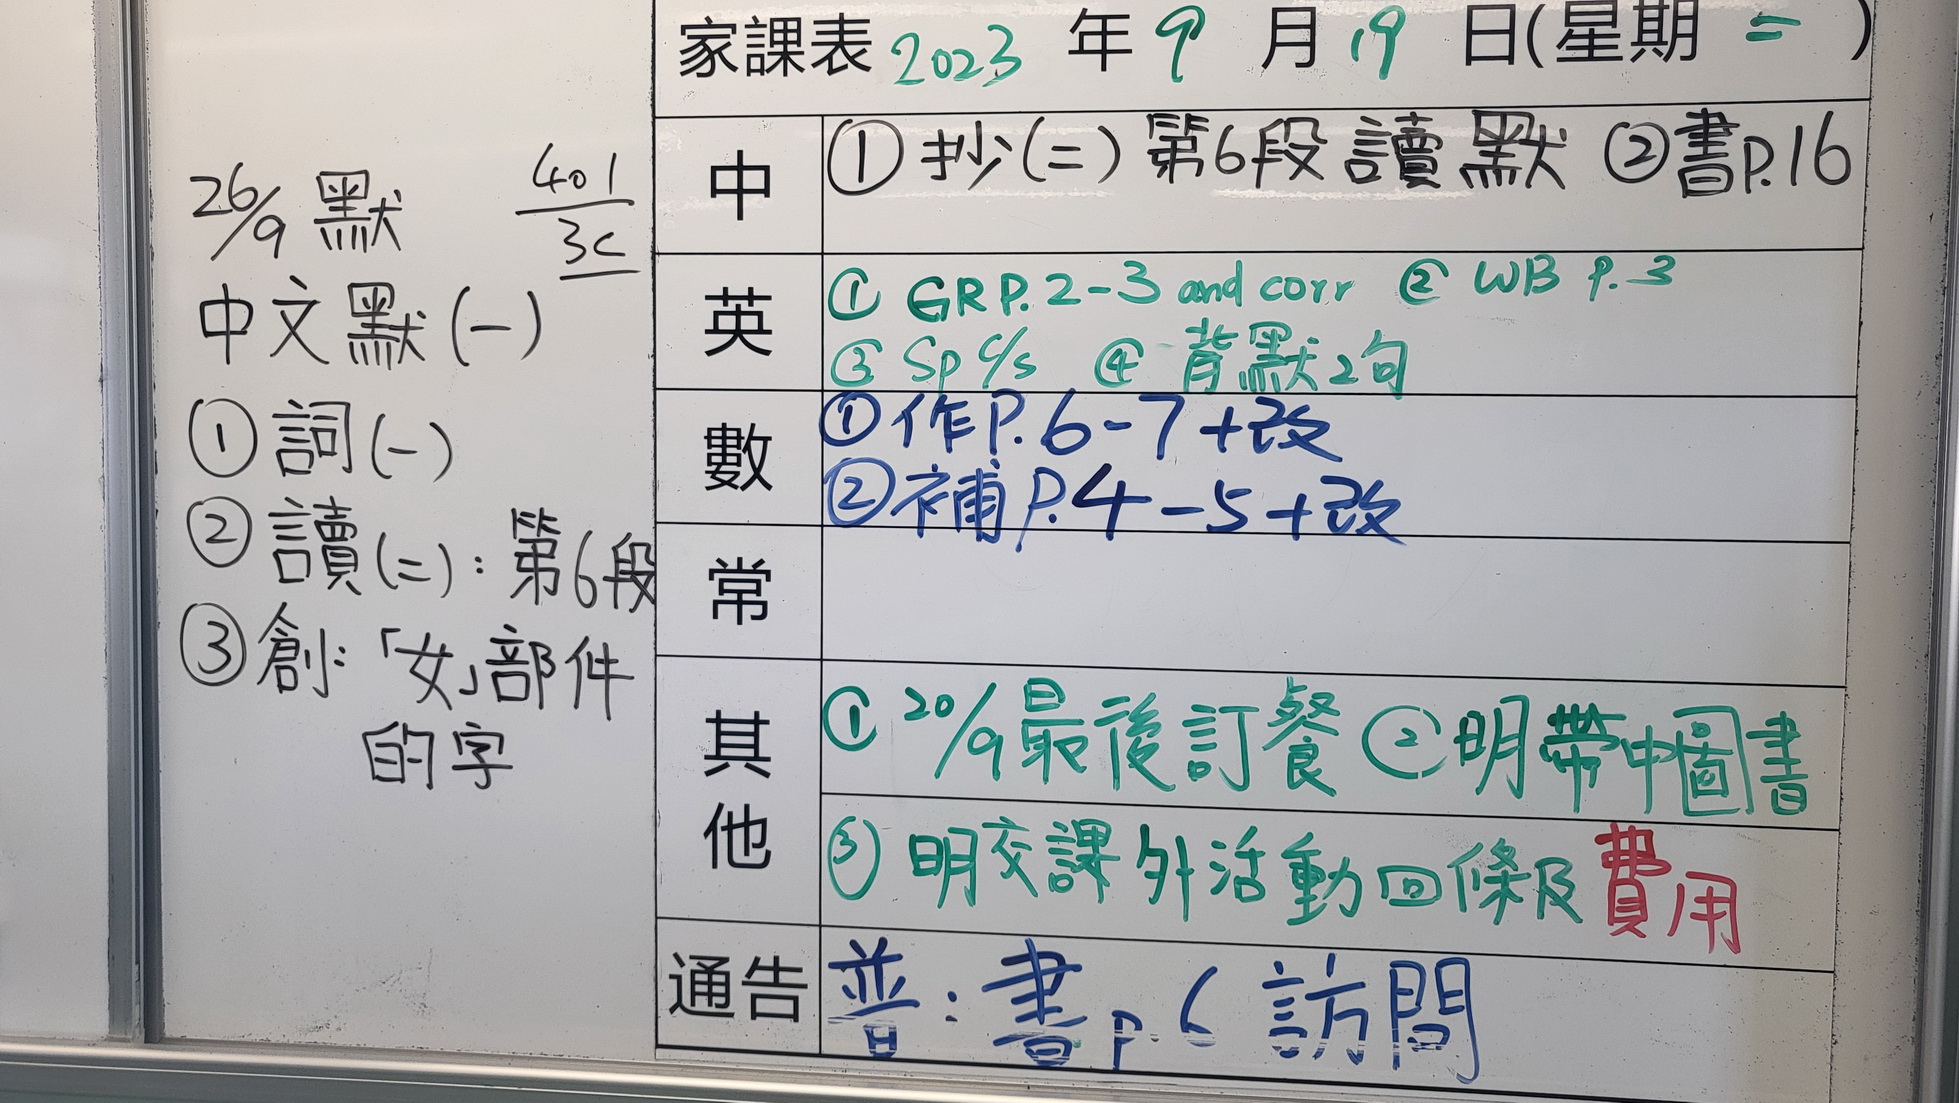 26/9 默
401
3C
中文默(一)
① 詞(一)
② 讀(二)：第6段
③ 創：「女」部件
的字
家課表 2023 年 9 月 19 日(星期 二 )
中 ① 抄(二) 第6段 讀默 ② 書P.16
英 ① GR P.2-3 and corr ② WB P.3
③ Sp c/s ④ 背默2句
數 ① 作P.6-7+改
② 補P.4-5+改
常
其他 ① 20/9最後訂餐 ② 明帶中圖書
③ 明交課外活動回條及費用
通告 普：書p.6 訪問